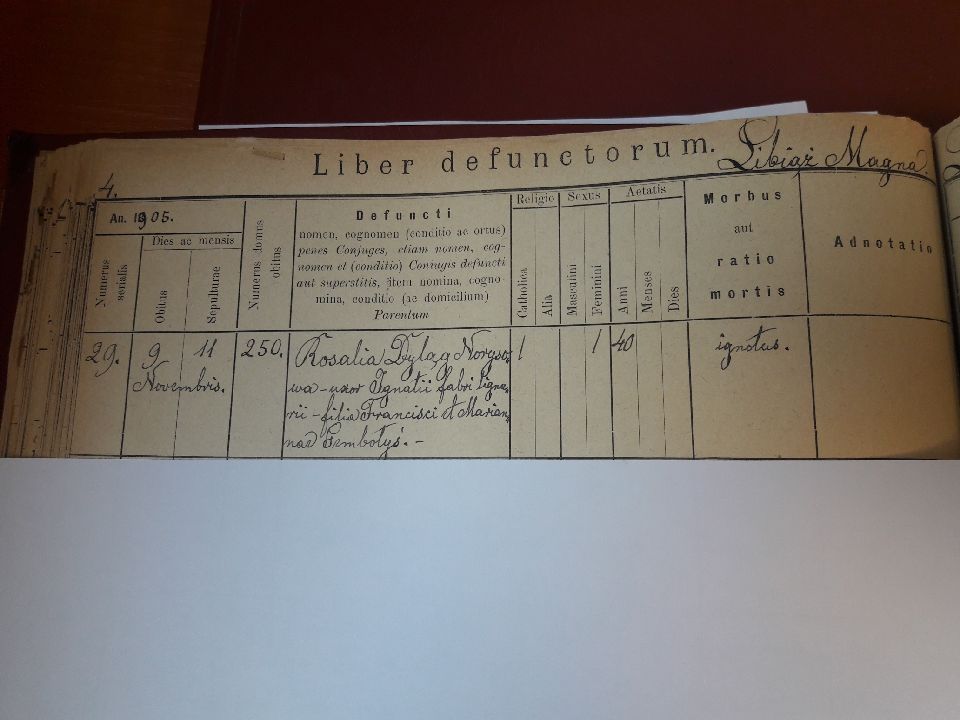 4.
Liber defunctorum. Libiąż Magna.
An. 1905.
Dies ac mensis
Numerus serialis
Obitus
Sepulturae
Numerus domus obitus
Defuncti
nomen, cognomen (conditio ac ortus)
penes Conjuges, etiam nomen, cog-
nomen et (conditio) Conjugis defuncti
aut superstitis, item nomina, cogno-
mina, conditio (ac domicilium)
Parentum
Religio
Catholica
Alia
Sexus
Masculini
Feminini
Aetatis
Anni
Menses
Dies
Morbus
aut
ratio
mortis
Adnotatio
29. 9 11 250. Rosalia 1 1 40 ignotus.
Novembris. wa - uxor Ignatii fabri ligna-
rii - filia Francisci et Marian-
nae